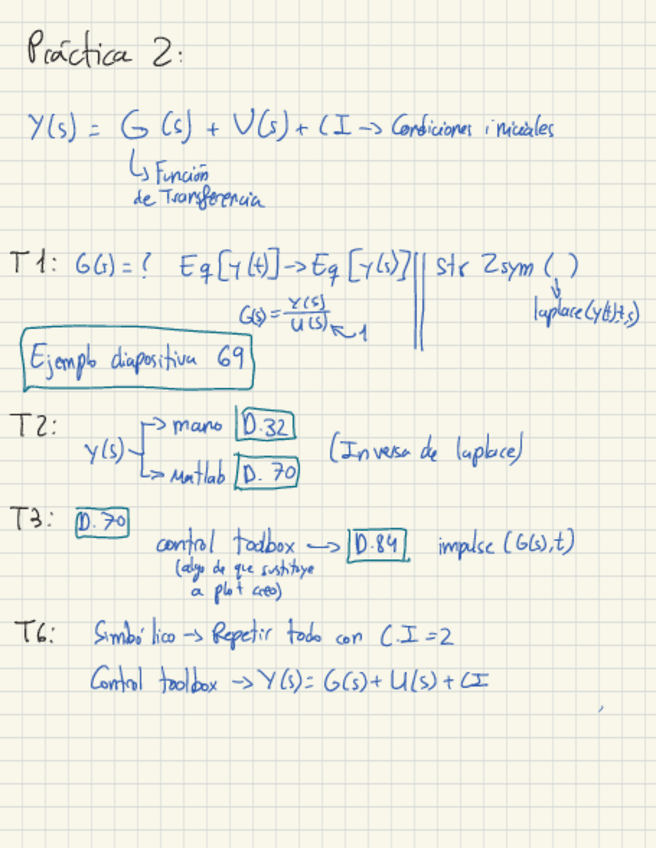 Práctica 2:
Y(s) = G(s) + U(s) + CI → Condiciones iniciales
↳ Función
de Transferencia
T1: G(s) = ? Eq[y(t)] → Eq[y(s)] || str2sym ( )
↓
G(s) = Y(s)/U(s) ↖1
laplace(y(t),t,s)
Ejemplo diapositiva 69
T2:
Y(s) → mano D.32
→ Matlab D. 70
(Inversa de laplace)
T3: D. 70
control toolbox → D.84 impulse (G(s),t)
(algo de que sustituye
a plot creo)
T6: Simbólico → Repetir todo con C.I = 2
Control toolbox → Y(s) = G(s) + U(s) + CI